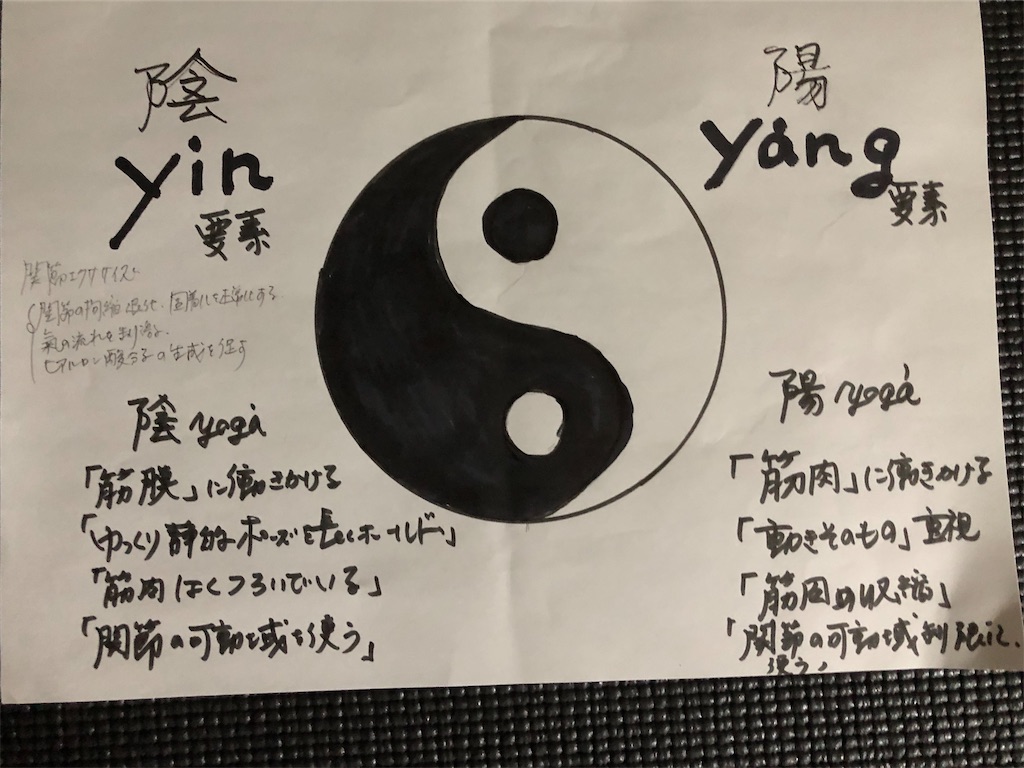 陰
yin
要素
関節エクササイズ
関節の拘縮 退化、固着化を正常化する
氣の流れを刺激
ヒアルロン酸分子の生成を促す
陰 yoga
「筋膜」に働きかける
「ゆっくり静的なポーズを長くホールド」
「筋肉はくつろいでいる」
「関節の可動域を使う」
陽
yáng
要素
陽 yoga
「筋肉」に働きかける
「動きそのもの」重視
「筋肉の収縮」
「関節の可動域制限に
使う」